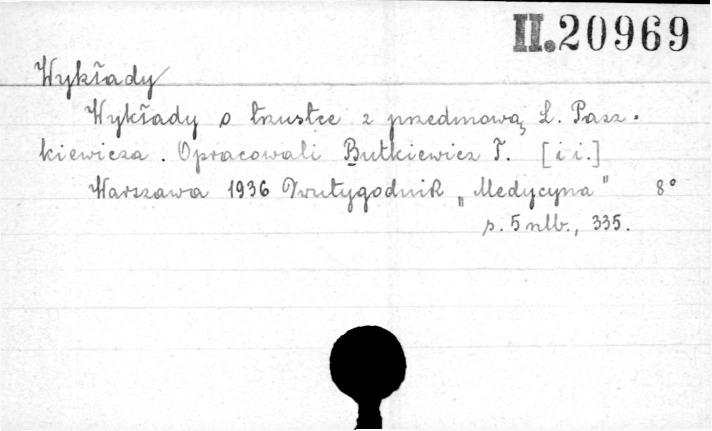 II.20969
Wykłady
Wykłady o trzustce z przedmową L. Pasz-
kiewicza. Opracowali Butkiewicz T. [i i.]
Warszawa 1936 Dwutygodnik „Medycyna" 8°
s. 5 nlb., 335.